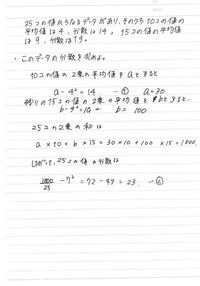 25コの値からなるデータがあり、そのうち10コの値の
平均値は4、分散は14、15コの値の平均値
は9、分散は19。
・このデータの分散を求めよ。
10コの値の2乗の平均値をaとすると
a - 4² = 14 … ① a = 30
残りの15コの値の2乗の平均値をbとすると、
b = 100
25コの2乗の和は
a × 10 + b × 15 = 30 × 10 + 100 × 15 = 1800
したがって、25コの値の分散は
1800/25 - 7² = 72 - 49 = 23